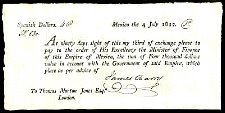 Spanish Dollars.
Mexico the 4 July 1822.
At ninety days sight of this my third of exchange please to
pay to the order of His Excellency the Minister of Finance
of this Empire of Mexico, the sum of Four thousand dollars
value in account with the Government of said Empire, which
place as per advice of
To Thomas Morton Jones Esqr
London.